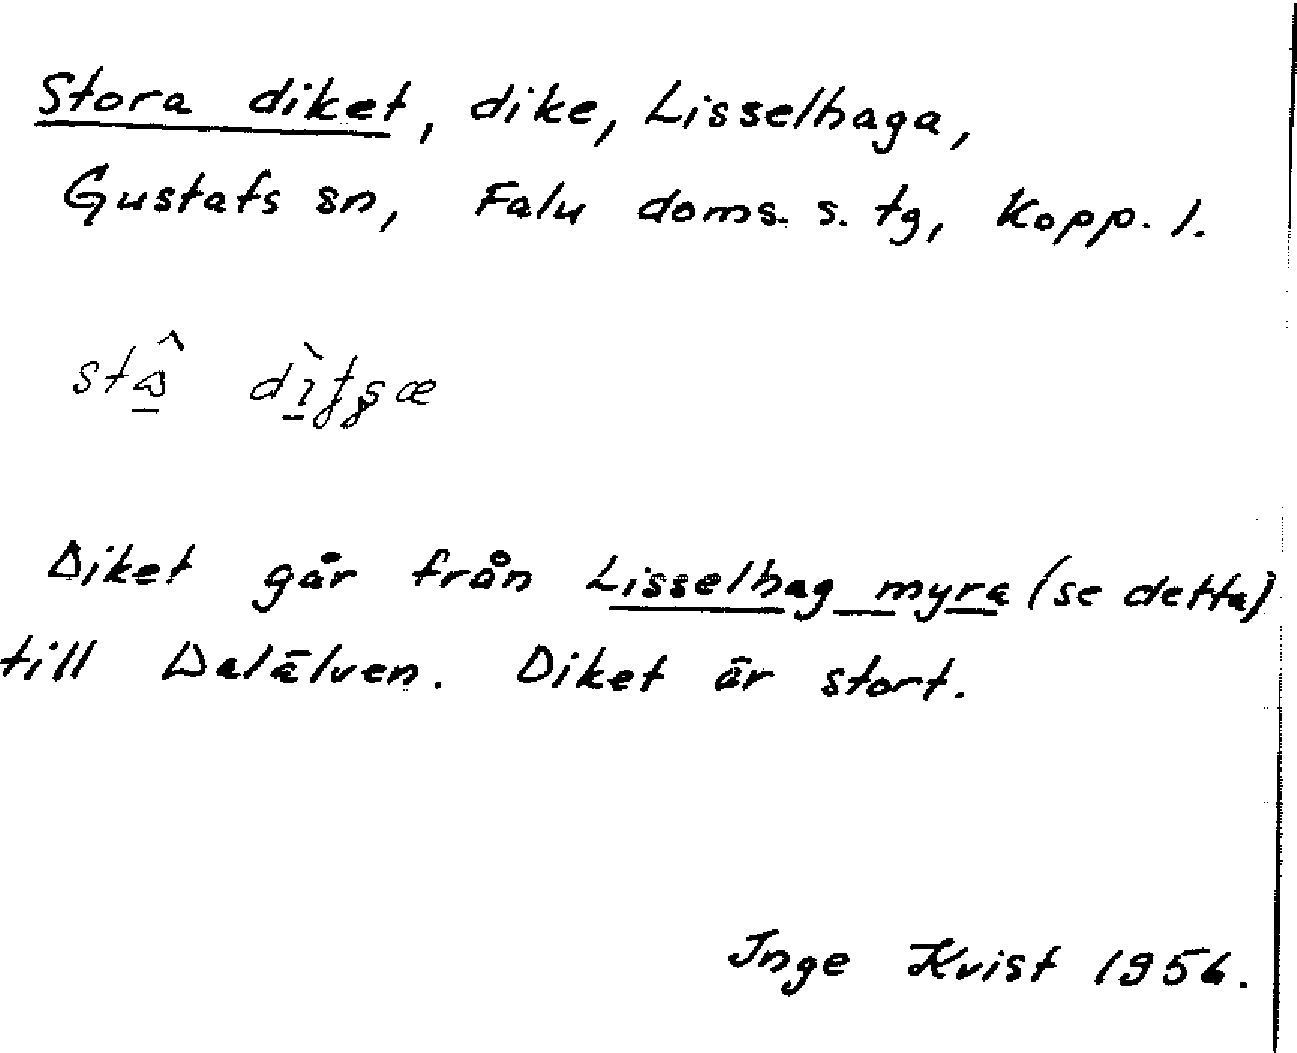 Stora diket, dike, Lisselhaga,
Gustafs sn, Falu doms. s. tg, Kopp. l.
Diket går från Lisselhag myra (se detta)
till Dalälven. Diket är stort.
Inge Kvist 1956.